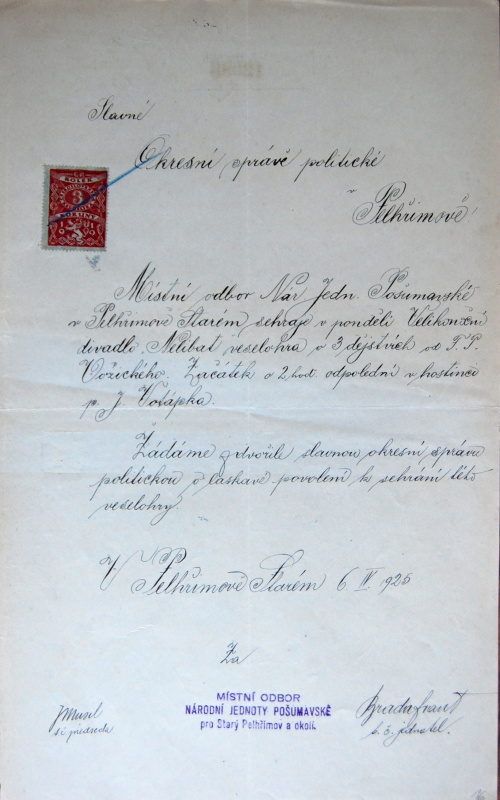 Slavné
Okresní správě politické
v
Pelhřimově.
ČSR.
KOLEK
3
KORUNY
Místní odbor Nár. Jedn. Pošumavské
v Pelhřimově Starém sehraje v pondělí Velikonoční
divadlo. Nelibat veselohra o 3 dějstvích od F. P.
Vožického. Začátek o 2 hod. odpolední v hostinci
p. J. Votápka.
Žádáme zdvořile slavnou okresní správu
politickou o laskavé povolení k sehrání této
veselohry.
V Pelhřimově Starém 6 IV 1926
Za
MÍSTNÍ ODBOR
NÁRODNÍ JEDNOTY POŠUMAVSKÉ
pro Starý Pelhřimov a okolí.
J Musel
t.č. předseda
t. č. jednatel.